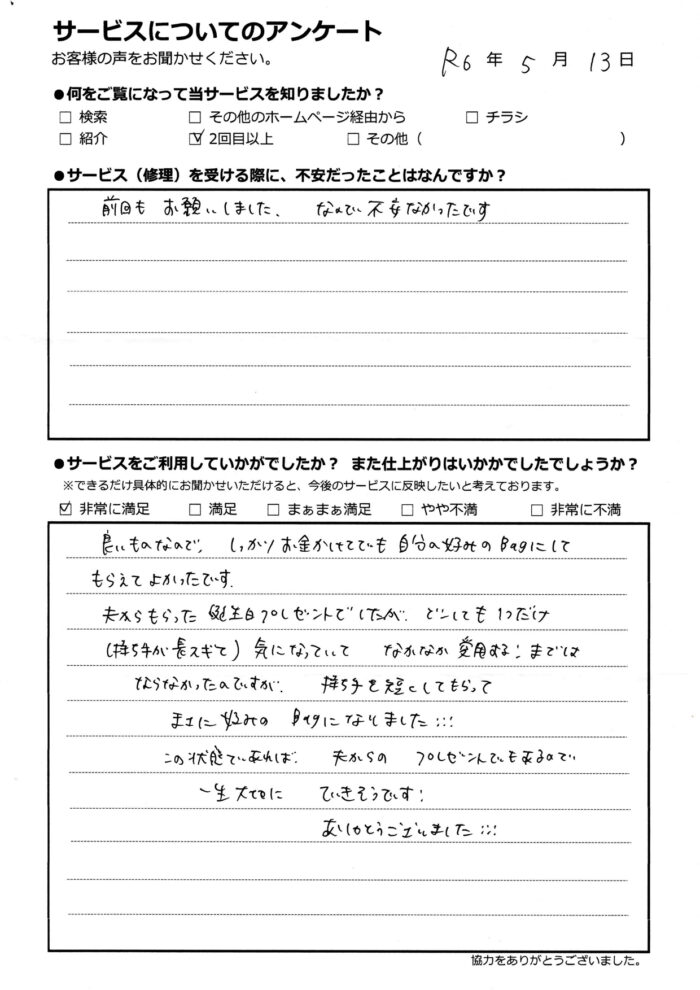 サービスについてのアンケート
お客様の声をお聞かせください。
R6 年 5 月 13 日
●何をご覧になって当サービスを知りましたか？
□ 検索 □ その他のホームページ経由から □ チラシ
□ 紹介 ☑ 2回目以上 □ その他（ ）
●サービス（修理）を受ける際に、不安だったことはなんですか？
前回も お願いしました、 なので不安なかったです
●サービスをご利用していかがでしたか？ また仕上がりはいかかでしたでしょうか？
※できるだけ具体的にお聞かせいただけると、今後のサービスに反映したいと考えております。
☑ 非常に満足 □ 満足 □ まぁまぁ満足 □ やや不満 □ 非常に不満
良いものなので、 しっかりお金かけてでも 自分の好みのBagにして
もらえてよかったです.
夫からもらった 誕生日プレゼントでしたが、どうしても1つだけ
(持ち手が長スギて) 気になっていて なかなか愛用する！までは
ならなかったのですが、 持ち手を短くしてもらって
まさに好みの Bagになりました!!!
この状態であれば、 夫からの プレゼントでもあるので
一生大切に できそうです！
ありがとうございました!!!
協力をありがとうございました。